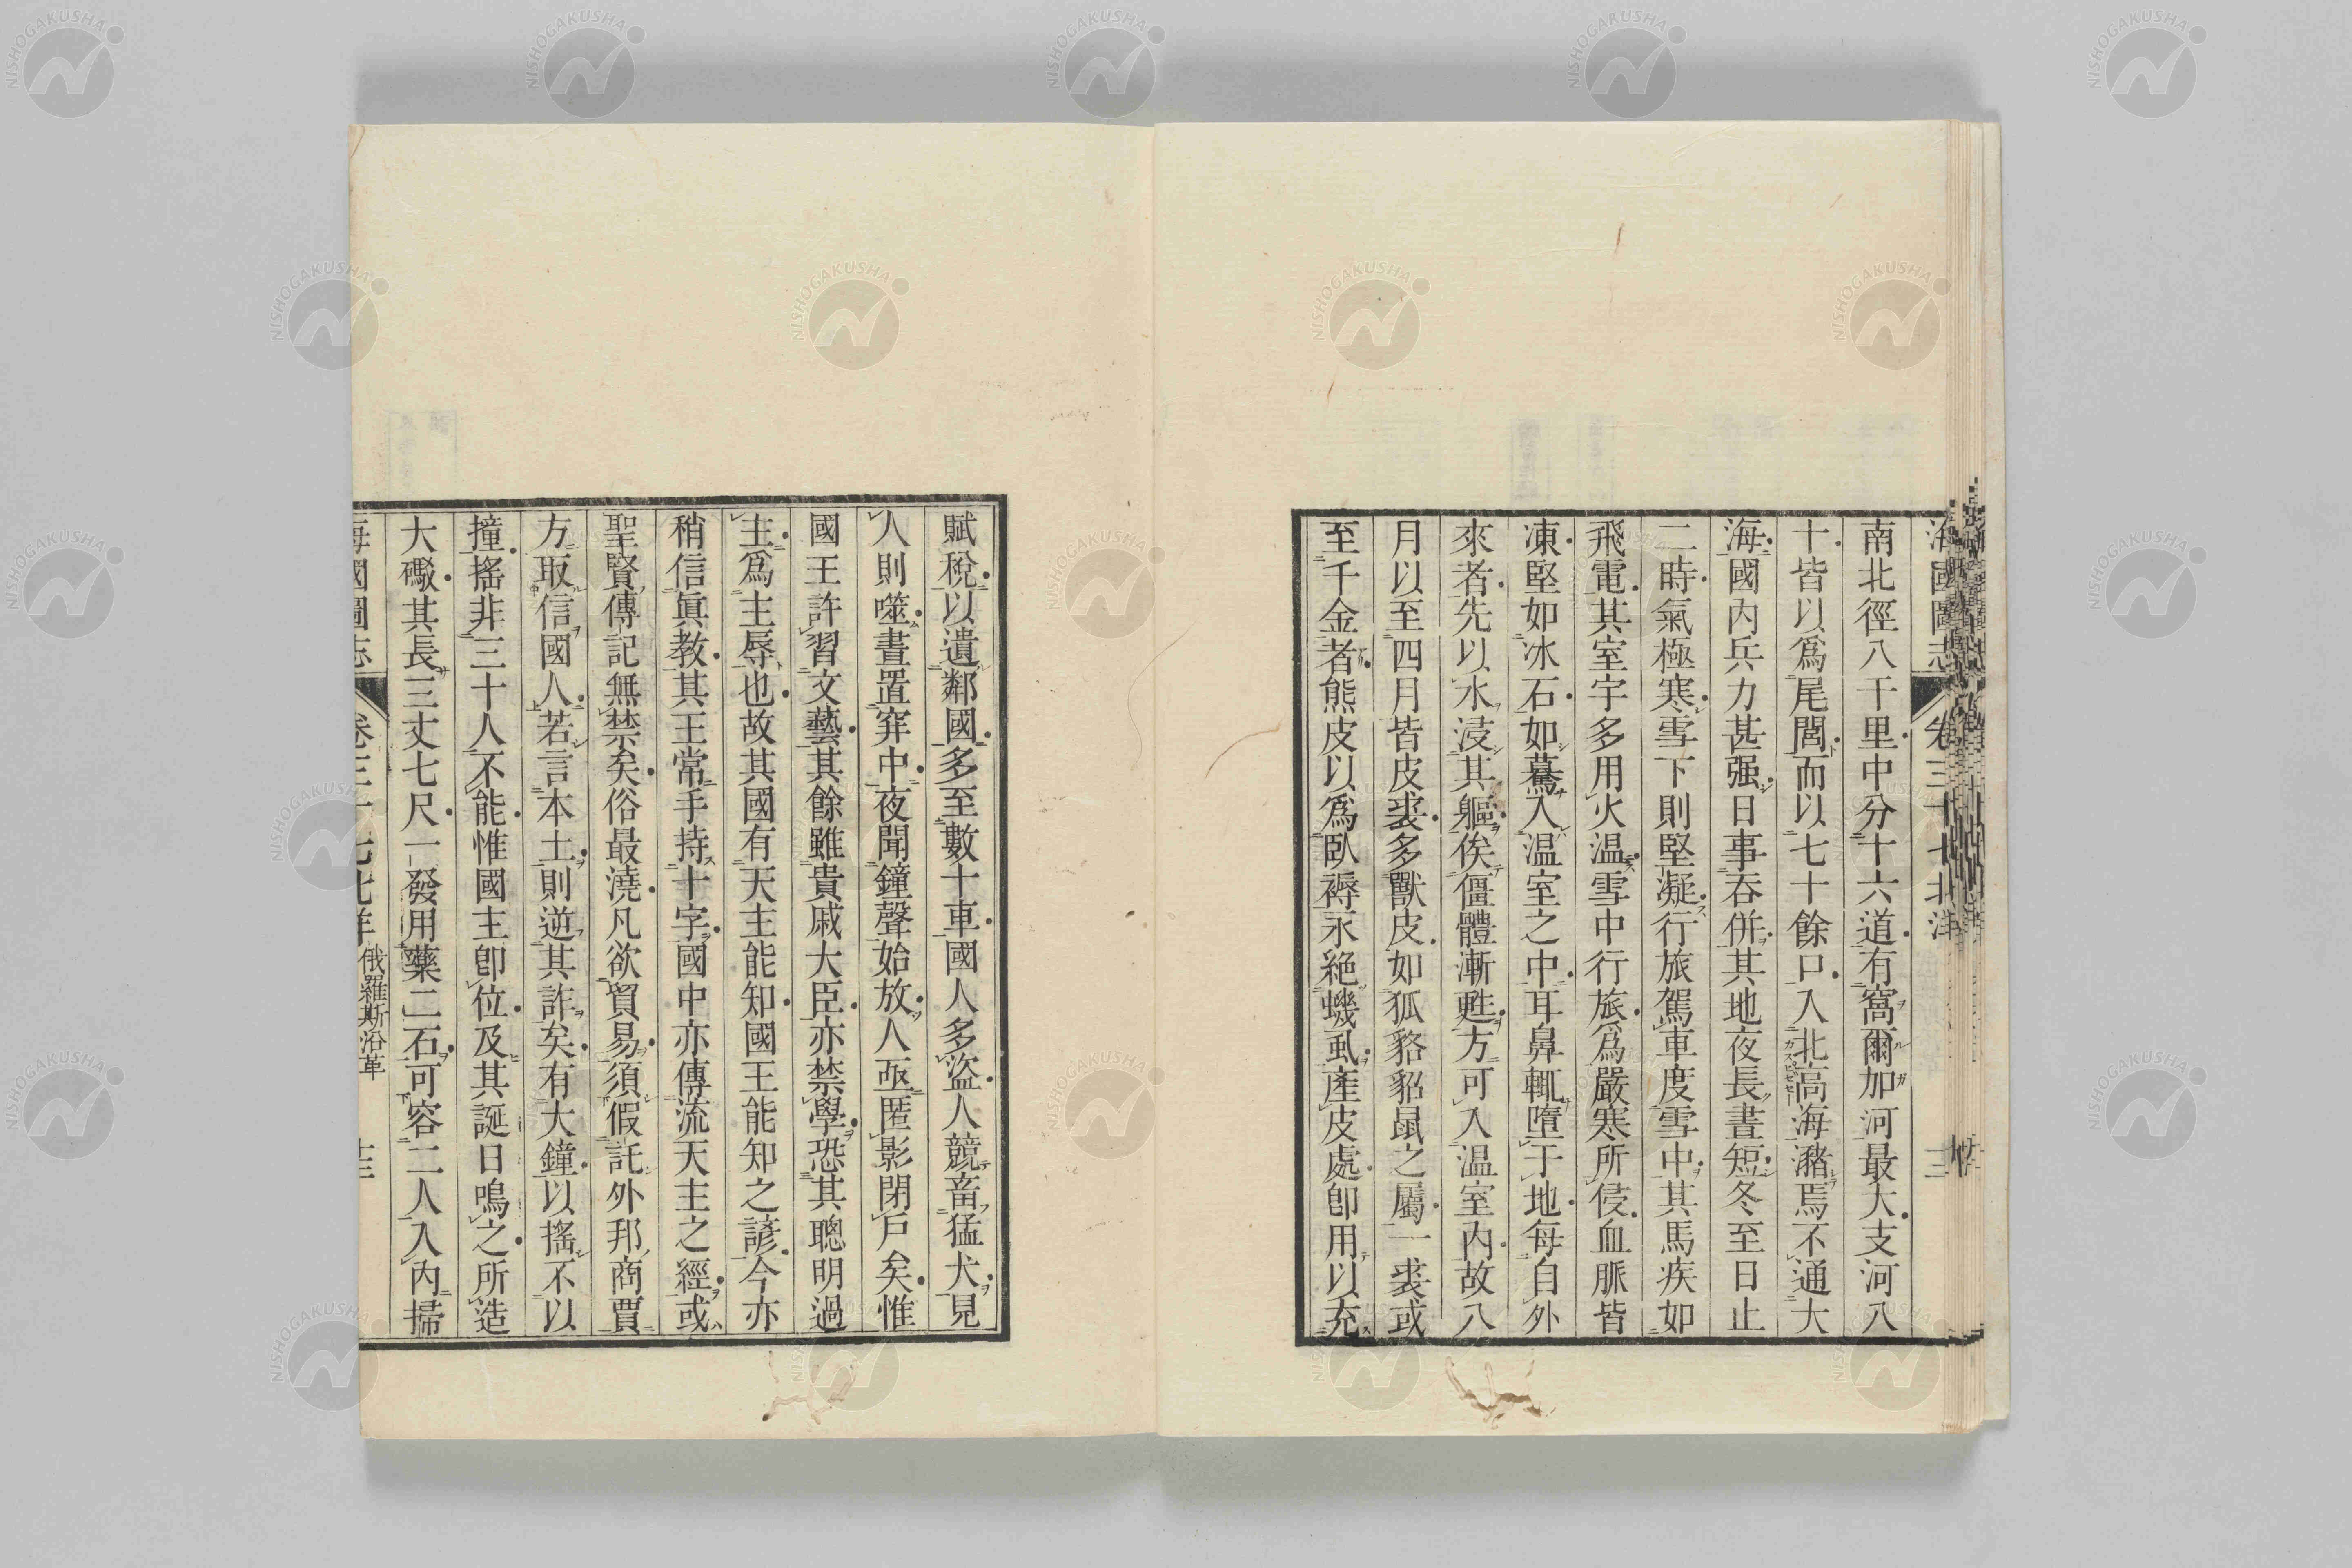 海國圖志 卷三十七 北洋
南北徑八千里中分十六道有窩爾加河最大支河八
十皆以爲尾閭而以七十餘口入北高海瀦焉不通大
海國內兵力甚强日事吞併其地夜長晝短冬至日止
二時氣極寒雪下則堅凝行旅駕車度雪中其馬疾如
飛電其室宇多用火温雪中行旅爲嚴寒所侵血脈皆
凍堅如冰石如驀入温室之中耳鼻輒墮于地每自外
來者先以水浸其軀俟僵體漸甦方可入温室內故八
月以至四月皆皮裘多獸皮如狐貉貂鼠之屬一裘或
至千金者熊皮以爲臥褥永絕蟣虱產皮處卽用以充
賦稅以遺鄰國多至數十車國人多盜人競畜猛犬見
人則噬晝置穽中夜聞鐘聲始放人亟匿影閉戶矣惟
國王許習文藝其餘雖貴戚大臣亦禁學恐其聰明過
主爲主辱也故其國有天主能知國王能知之諺今亦
稍信眞教其王常手持十字國中亦傳流天主之經或
聖賢傳記無禁矣俗最澆凡欲貿易須假託外邦商賈
方取信國人若言本土則逆其詐矣有大鐘以搖不以
撞搖非三十人不能惟國主卽位及其誕日鳴之所造
大礮其長三丈七尺一發用藥二石可容二人入內掃
海國圖志 卷三十七 北洋 俄羅斯沿革